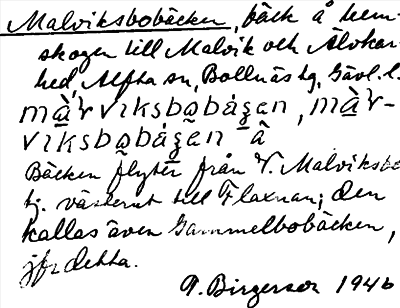 Malviksbobäcken, bäck å hem-
skogen till Malvik och Älvkar-
hed, Alfta sn, Bollnäs tg, Gävl. l.
mà̱r vìksbo̱bág̱an, mà̱r-
vìksbo̱bág̱an â
Bäcken flyter från V. Malviksbo
tj. västerut till Flaxnan; den
kallas även Gammelbobäcken,
jfr detta.
Birgerson 1946